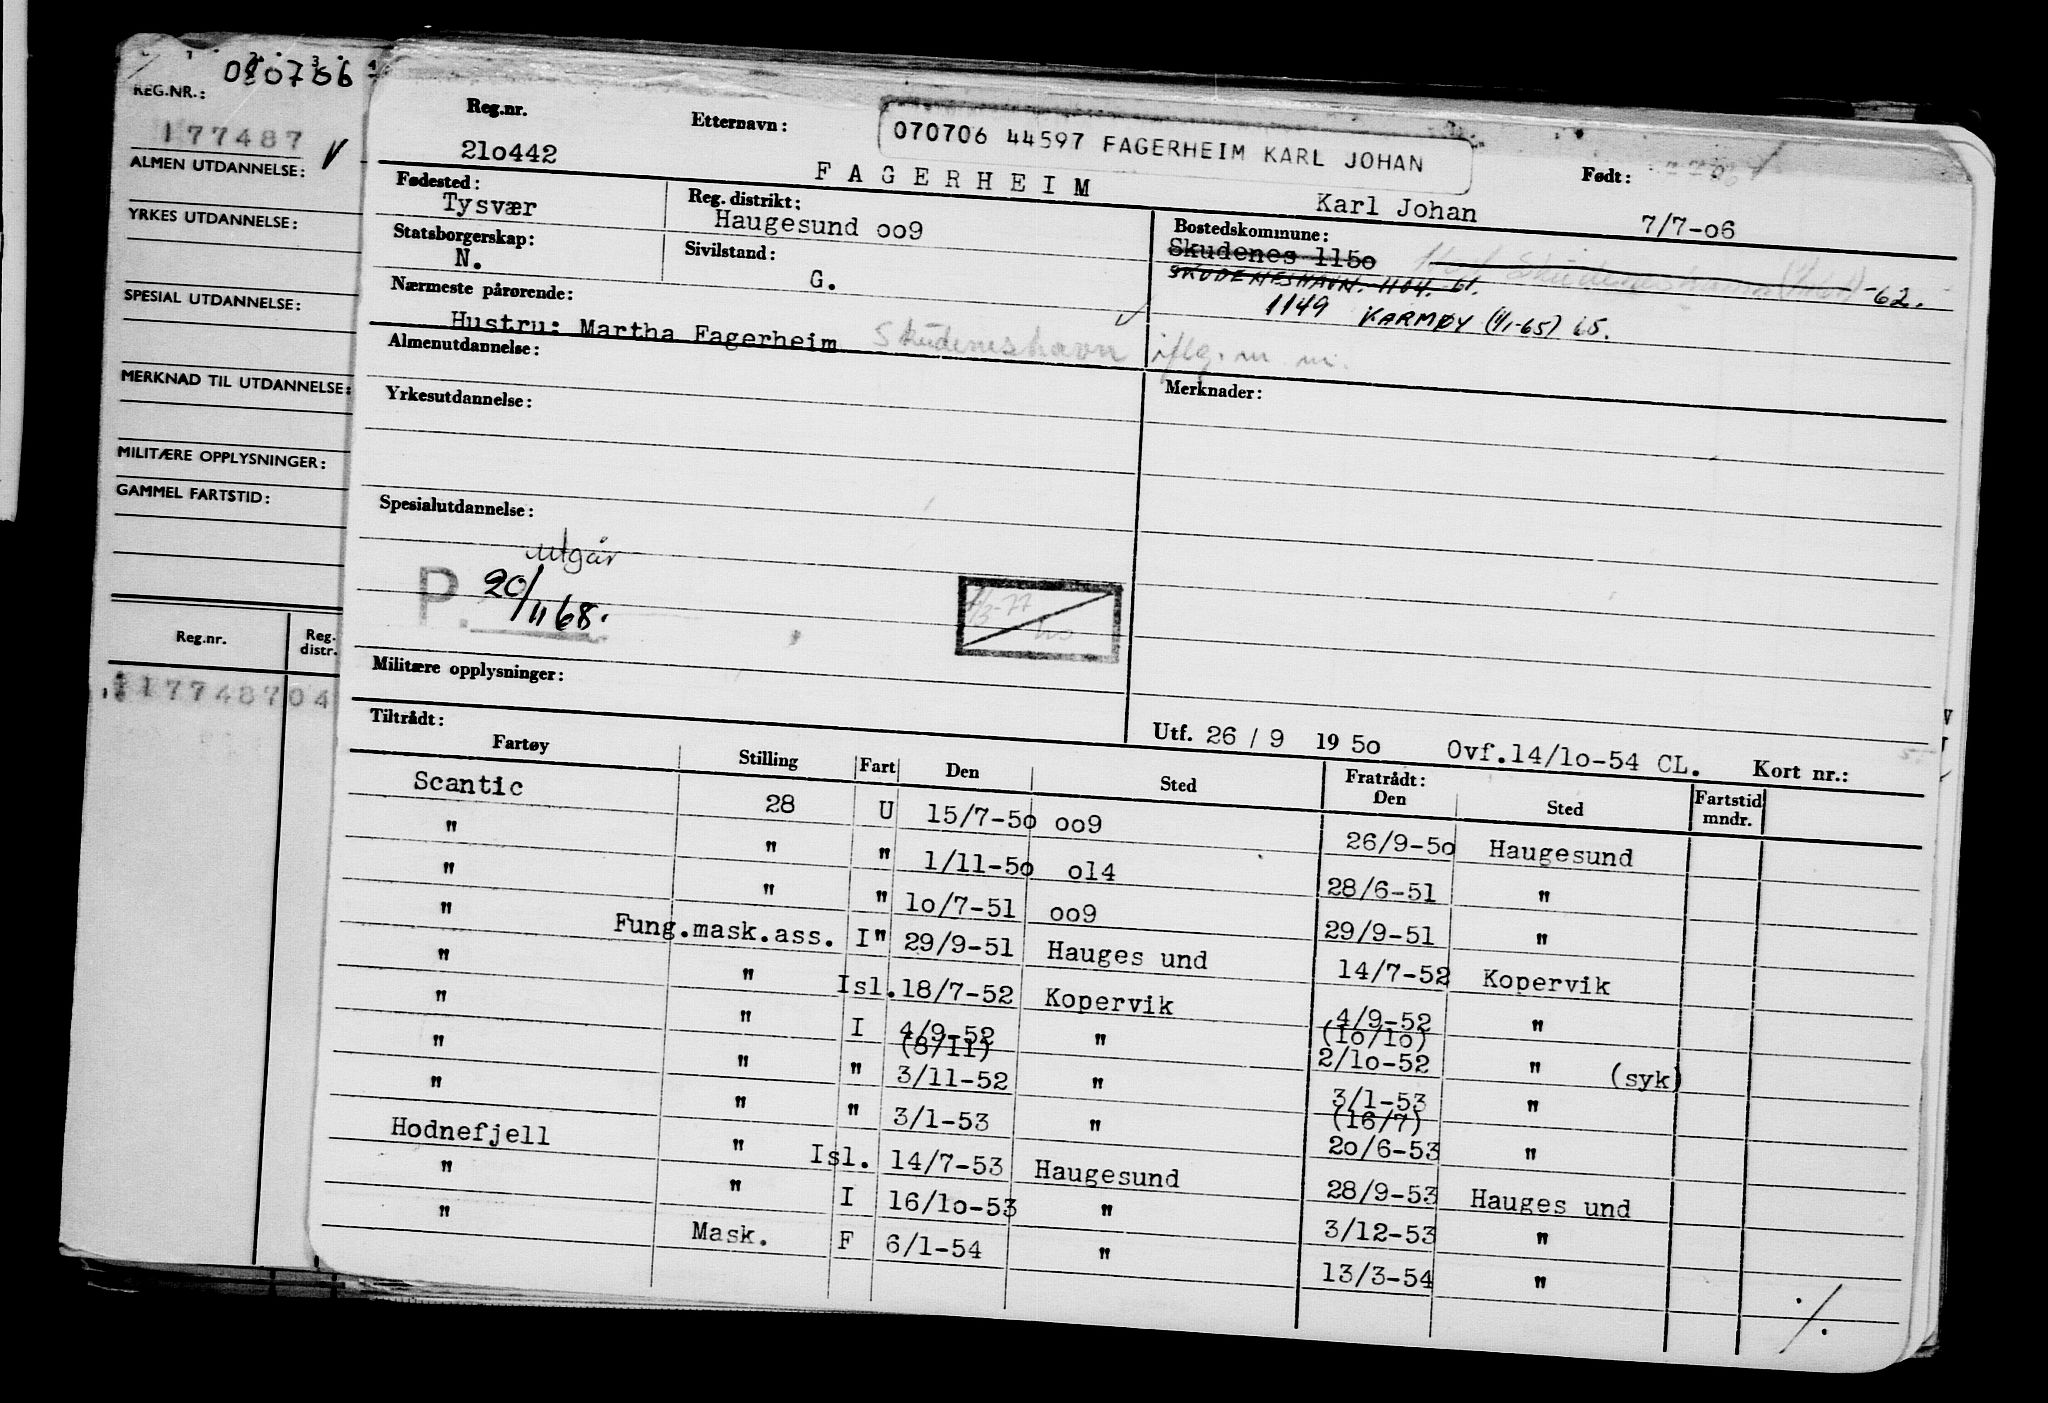 010756
REG.NR.:
177487 V
ALMEN UTDANNELSE:
YRKES UTDANNELSE:
SPESIAL UTDANNELSE:
MERKNAD TIL UTDANNELSE:
MILITÆRE OPPLYSNINGER:
GAMMEL FARTSTID:
Reg.nr. Reg. distr.
17748704
Reg.nr. Etternavn: 070706 44597 FAGERHEIM KARL JOHAN Født:
21o442 FAGERHEIM Karl Johan 7/7-o6
Fødested: Reg. distrikt: Bostedskommune:
Tysvær Haugesund oo9 Skudenes 115o
Statsborgerskap: Sivilstand: SKUDENESHAVN. 1104. 61. -62.
N. G. 1149 KARMØY (1/1-65) 65.
Nærmeste pårørende:
Hustru: Martha Fagerheim Skudeneshavn iflg. m. m.
Almenutdannelse:
Yrkesutdannelse: Merknader:
Spesialutdannelse:
utgår
P. 20/11 68.
Militære opplysninger:
Tiltrådt: Utf. 26 / 9 19 5o Ovf.14/1o-54 CL. Kort nr.:
Fartøy Stilling Fart Den Sted Fratrådt: Den Sted Fartstid mndr.
Scantic 28 U 15/7-5o oo9 26/9-5o Haugesund
" " " 1/11-5o o14 28/6-51 "
" " " 1o/7-51 oo9 29/9-51 "
" Fung.mask.ass. I" 29/9-51 Hauges und 14/7-52 Kopervik
" " Isl. 18/7-52 Kopervik 4/9-52 "
" " I 4/9-52 " (1o/1o) 2/1o-52 " (syk)
" " " (8/11) 3/11-52 " 3/1-53 "
" " " 3/1-53 " (16/7) 2o/6-53 "
Hodnefjell " Isl. 14/7-53 Haugesund 28/9-53 Hauges und
" " I 16/1o-53 " 3/12-53 "
" Mask. F 6/1-54 " 13/3-54 "
./.